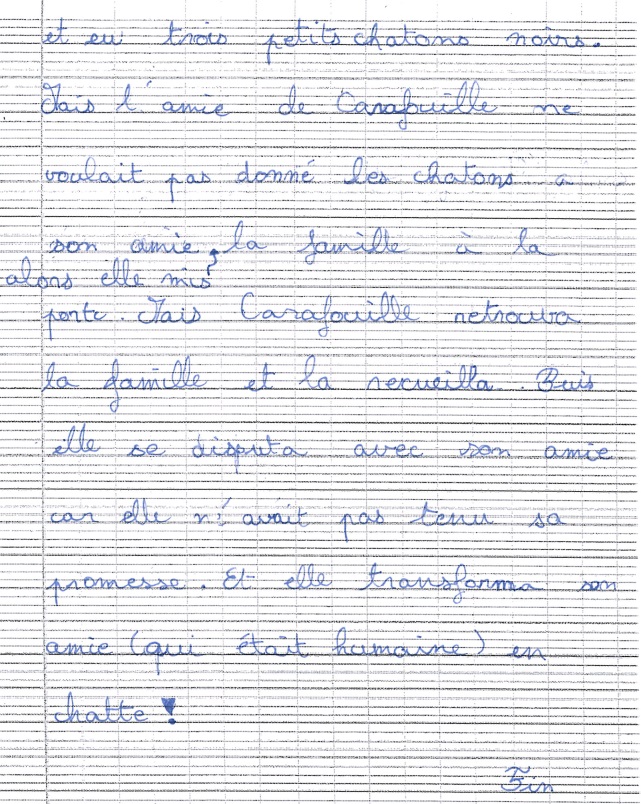 et eu trois petits chatons noirs.
Mais l'amie de Carafouille ne
voulait pas donné les chatons a
son amie, la famille à la
alors elle mis
porte. Mais Carafouille retrouva
la famille et la recueilla. Puis
elle se disputa avec son amie
car elle n'avait pas tenu sa
promesse. Et elle transforma son
amie (qui était humaine) en
chatte !
Fin